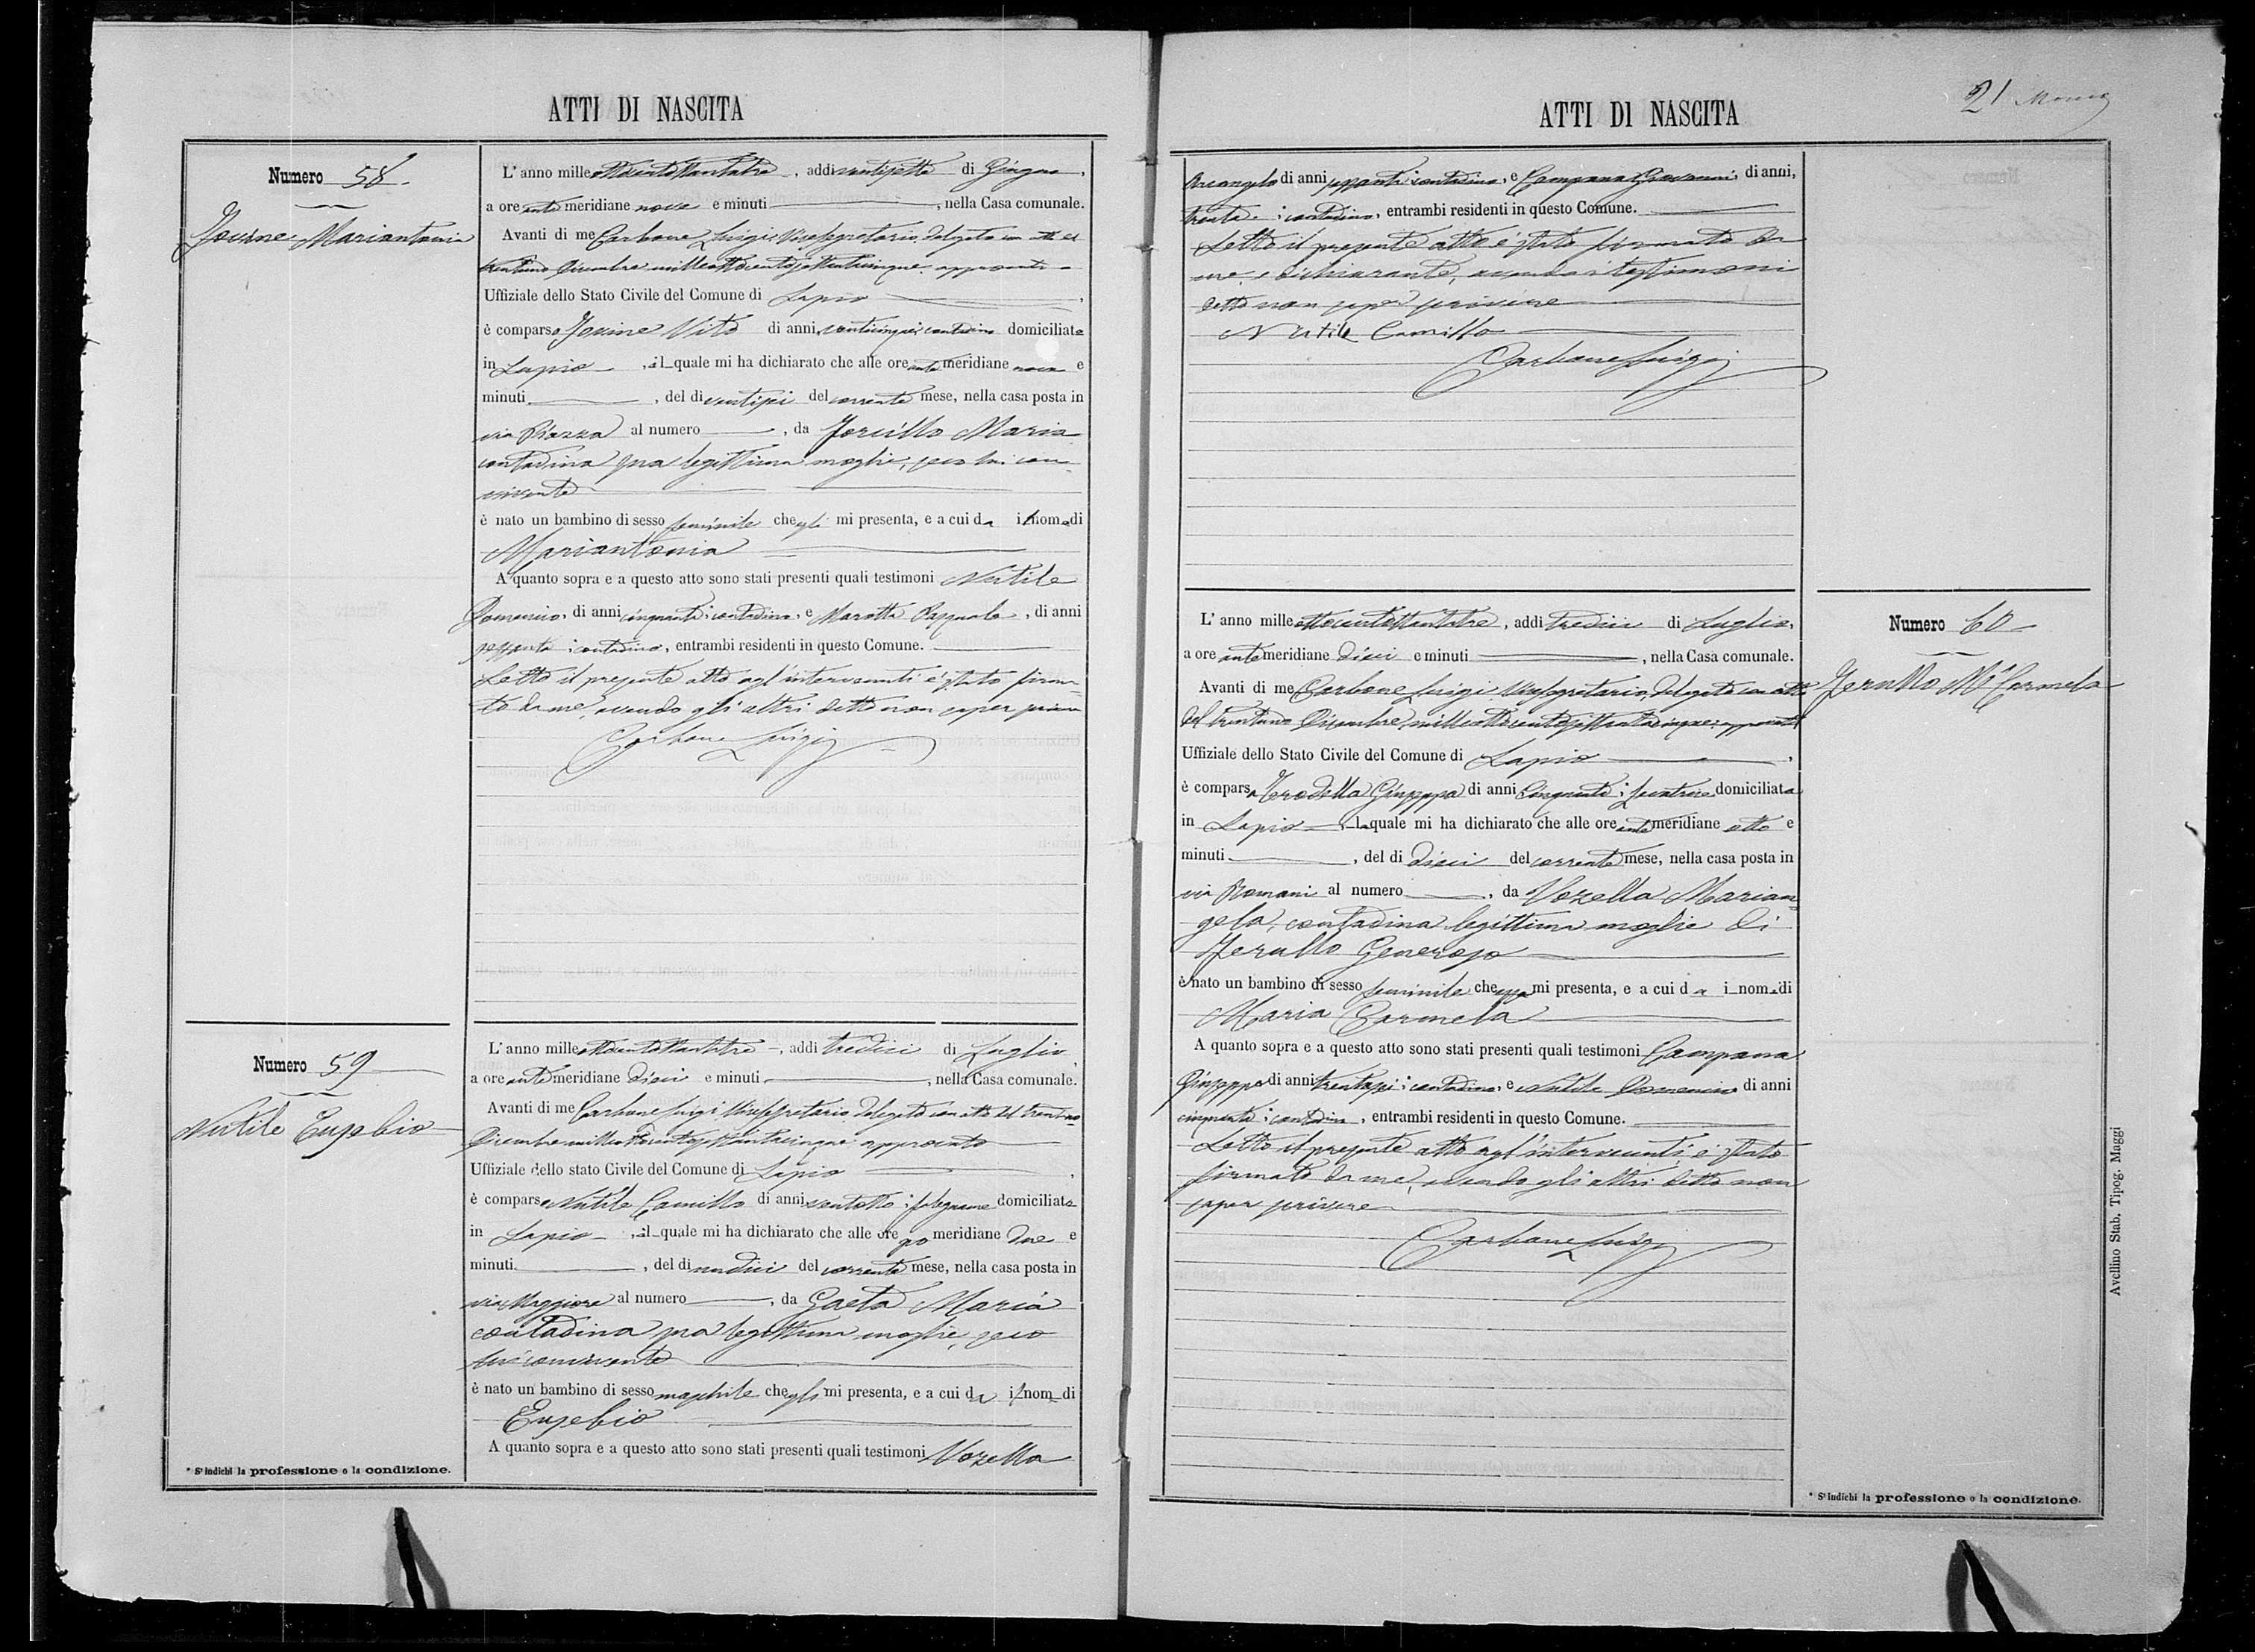 ATTI DI NASCITA
Numero 58.
Mariantonia
L'anno milleottocentottantatre, addi ventisette di Giugno,
a ore antemeridiane nove e minuti, nella Casa comunale.
Avanti di me Carbone Luigi Vicesegretario, delegato con atto del
trentuno Dicembre milleottocentosettantacinque approvato
Uffiziale dello Stato Civile del Comune di Lapio,
è comparso Vito di anni venticinque contadino domiciliato
in Lapio, il quale mi ha dichiarato che alle ore antemeridiane nove e
minuti, del di ventisei del corrente mese, nella casa posta in
via Piazza al numero, da Maria
contadina sua legittima moglie, seco lui con-
vivente
è nato un bambino di sesso feminile che egli mi presenta, e a cui da il nome di
Mariantonia
A quanto sopra e a questo atto sono stati presenti quali testimoni Nutile
Domenico, di anni cinquanta contadino, e Marotta Pasquale, di anni
sessanta contadino, entrambi residenti in questo Comune.
Letto il presente atto agl'intervenuti è stato firma-
to da me, avendo gli altri detto non saper scrivere
Carbone Luigi
Numero 59
Nutile Eusebio
L'anno milleottocentottantatre, addi tredici di Luglio,
a ore antemeridiane dieci e minuti, nella Casa comunale.
Avanti di me Carbone Luigi Vicesegretario delegato con atto del trentuno
Dicembre milleottocentosettantacinque approvato
Uffiziale dello stato Civile del Comune di Lapio,
è comparso Nutile Camillo di anni ventotto falegname domiciliato
in Lapio, il quale mi ha dichiarato che alle ore po meridiane due e
minuti, del di undici del corrente mese, nella casa posta in
via Maggiore al numero, da Gaeta Maria
contadina sua legittima moglie, seco
lui convivente
è nato un bambino di sesso maschile che egli mi presenta, e a cui da il nom di
Eusebio
A quanto sopra e a questo atto sono stati presenti quali testimoni Vozella
* S'indichi la professione o la condizione.
ATTI DI NASCITA
21
Arcangelo di anni sessanta contadino, e Campana Giovanni, di anni,
trenta contadino, entrambi residenti in questo Comune.
Letto il presente atto è stato firmato da
me, e dichiarante, avendo i testimoni
detto non saper scrivere
Nutile Camillo
Carbone Luigi
Numero 60
Mª Carmela
L'anno milleottocentottantatre, addi tredici di Luglio,
a ore antemeridiane dieci e minuti, nella Casa comunale.
Avanti di me Carbone Luigi Vicesegretario, delegato con atto
del trentuno Dicembre, milleottocentosettantacinque approvato
Uffiziale dello Stato Civile del Comune di Lapio,
è comparsa Giuseppa di anni cinquanta levatrice domiciliata
in Lapio, la quale mi ha dichiarato che alle ore antemeridiane otto e
minuti, del di dieci del corrente mese, nella casa posta in
via Romani al numero, da Vozella Marian-
gela, contadina legittima moglie di
Generoso
è nato un bambino di sesso feminile che essa mi presenta, e a cui da i nome di
Maria Carmela
A quanto sopra e a questo atto sono stati presenti quali testimoni Campana
Giuseppe di anni trentasei contadino, e Nutile Domenico di anni
cinquanta contadino, entrambi residenti in questo Comune.
Letto il presente atto agl'intervenuti è stato
firmato da me, avendo gli altri detto non
saper scrivere
Carbone Luigi
* S'indichi la professione o la condizione.
Avellino Stab. Tipog. Maggi